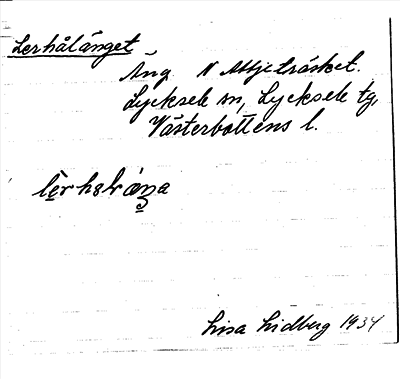 Lerhålänget
Äng N Abbjeträsket.
Lycksele sn, Lycksele tg,
Västerbottens l.
Lisa Lidberg 1934